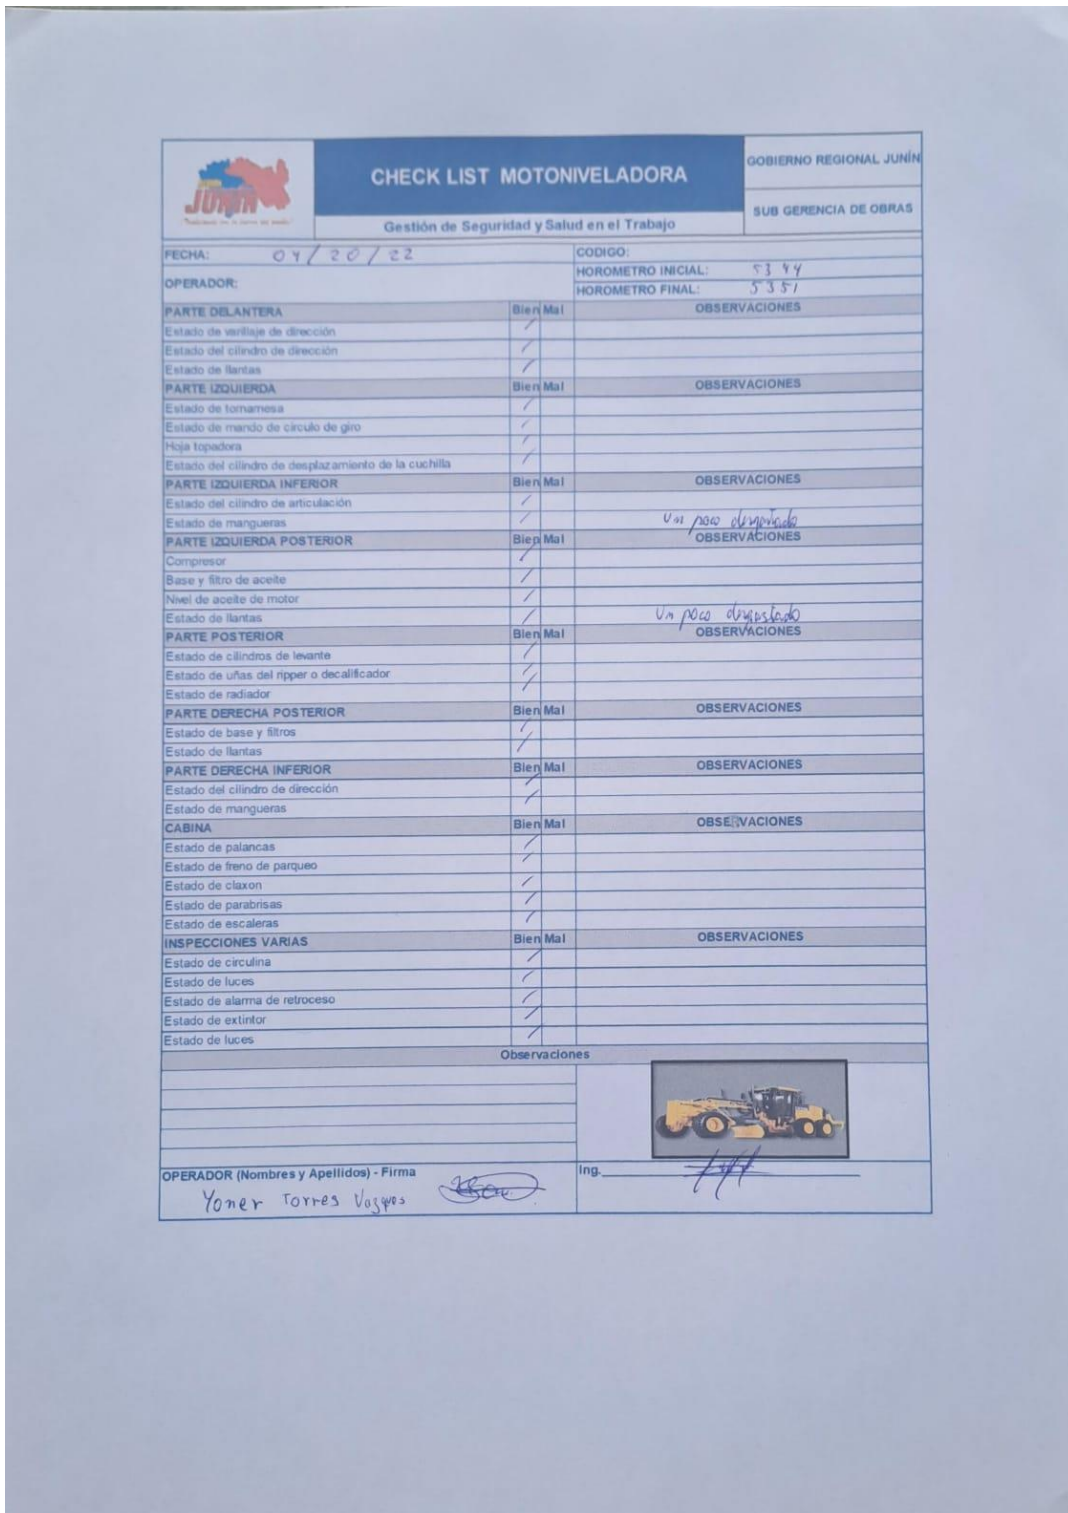 JUNIN
CHECK LIST MOTONIVELADORA
Gestión de Seguridad y Salud en el Trabajo
GOBIERNO REGIONAL JUNÍN
SUB GERENCIA DE OBRAS
FECHA: 04/20/22
CODIGO:
OPERADOR:
HOROMETRO INICIAL: 5344
HOROMETRO FINAL: 5351
PARTE DELANTERA Bien Mal OBSERVACIONES
Estado de varillaje de dirección /
Estado del cilindro de dirección /
Estado de llantas /
PARTE IZQUIERDA Bien Mal OBSERVACIONES
Estado de tornamesa /
Estado de mando de circulo de giro /
Hoja topadora /
Estado del cilindro de desplazamiento de la cuchilla /
PARTE IZQUIERDA INFERIOR Bien Mal OBSERVACIONES
Estado del cilindro de articulación /
Estado de mangueras / Un poco desgastado
PARTE IZQUIERDA POSTERIOR Bien Mal OBSERVACIONES
Compresor /
Base y filtro de aceite /
Nivel de aceite de motor /
Estado de llantas / Un poco desgastado
PARTE POSTERIOR Bien Mal OBSERVACIONES
Estado de cilindros de levante /
Estado de uñas del ripper o decalificador /
Estado de radiador /
PARTE DERECHA POSTERIOR Bien Mal OBSERVACIONES
Estado de base y filtros /
Estado de llantas /
PARTE DERECHA INFERIOR Bien Mal OBSERVACIONES
Estado del cilindro de dirección /
Estado de mangueras /
CABINA Bien Mal OBSERVACIONES
Estado de palancas /
Estado de freno de parqueo /
Estado de claxon /
Estado de parabrisas /
Estado de escaleras /
INSPECCIONES VARIAS Bien Mal OBSERVACIONES
Estado de circulina /
Estado de luces /
Estado de alarma de retroceso /
Estado de extintor /
Estado de luces /
Observaciones
OPERADOR (Nombres y Apellidos) - Firma
Yoner Torres Vazques
Ing.